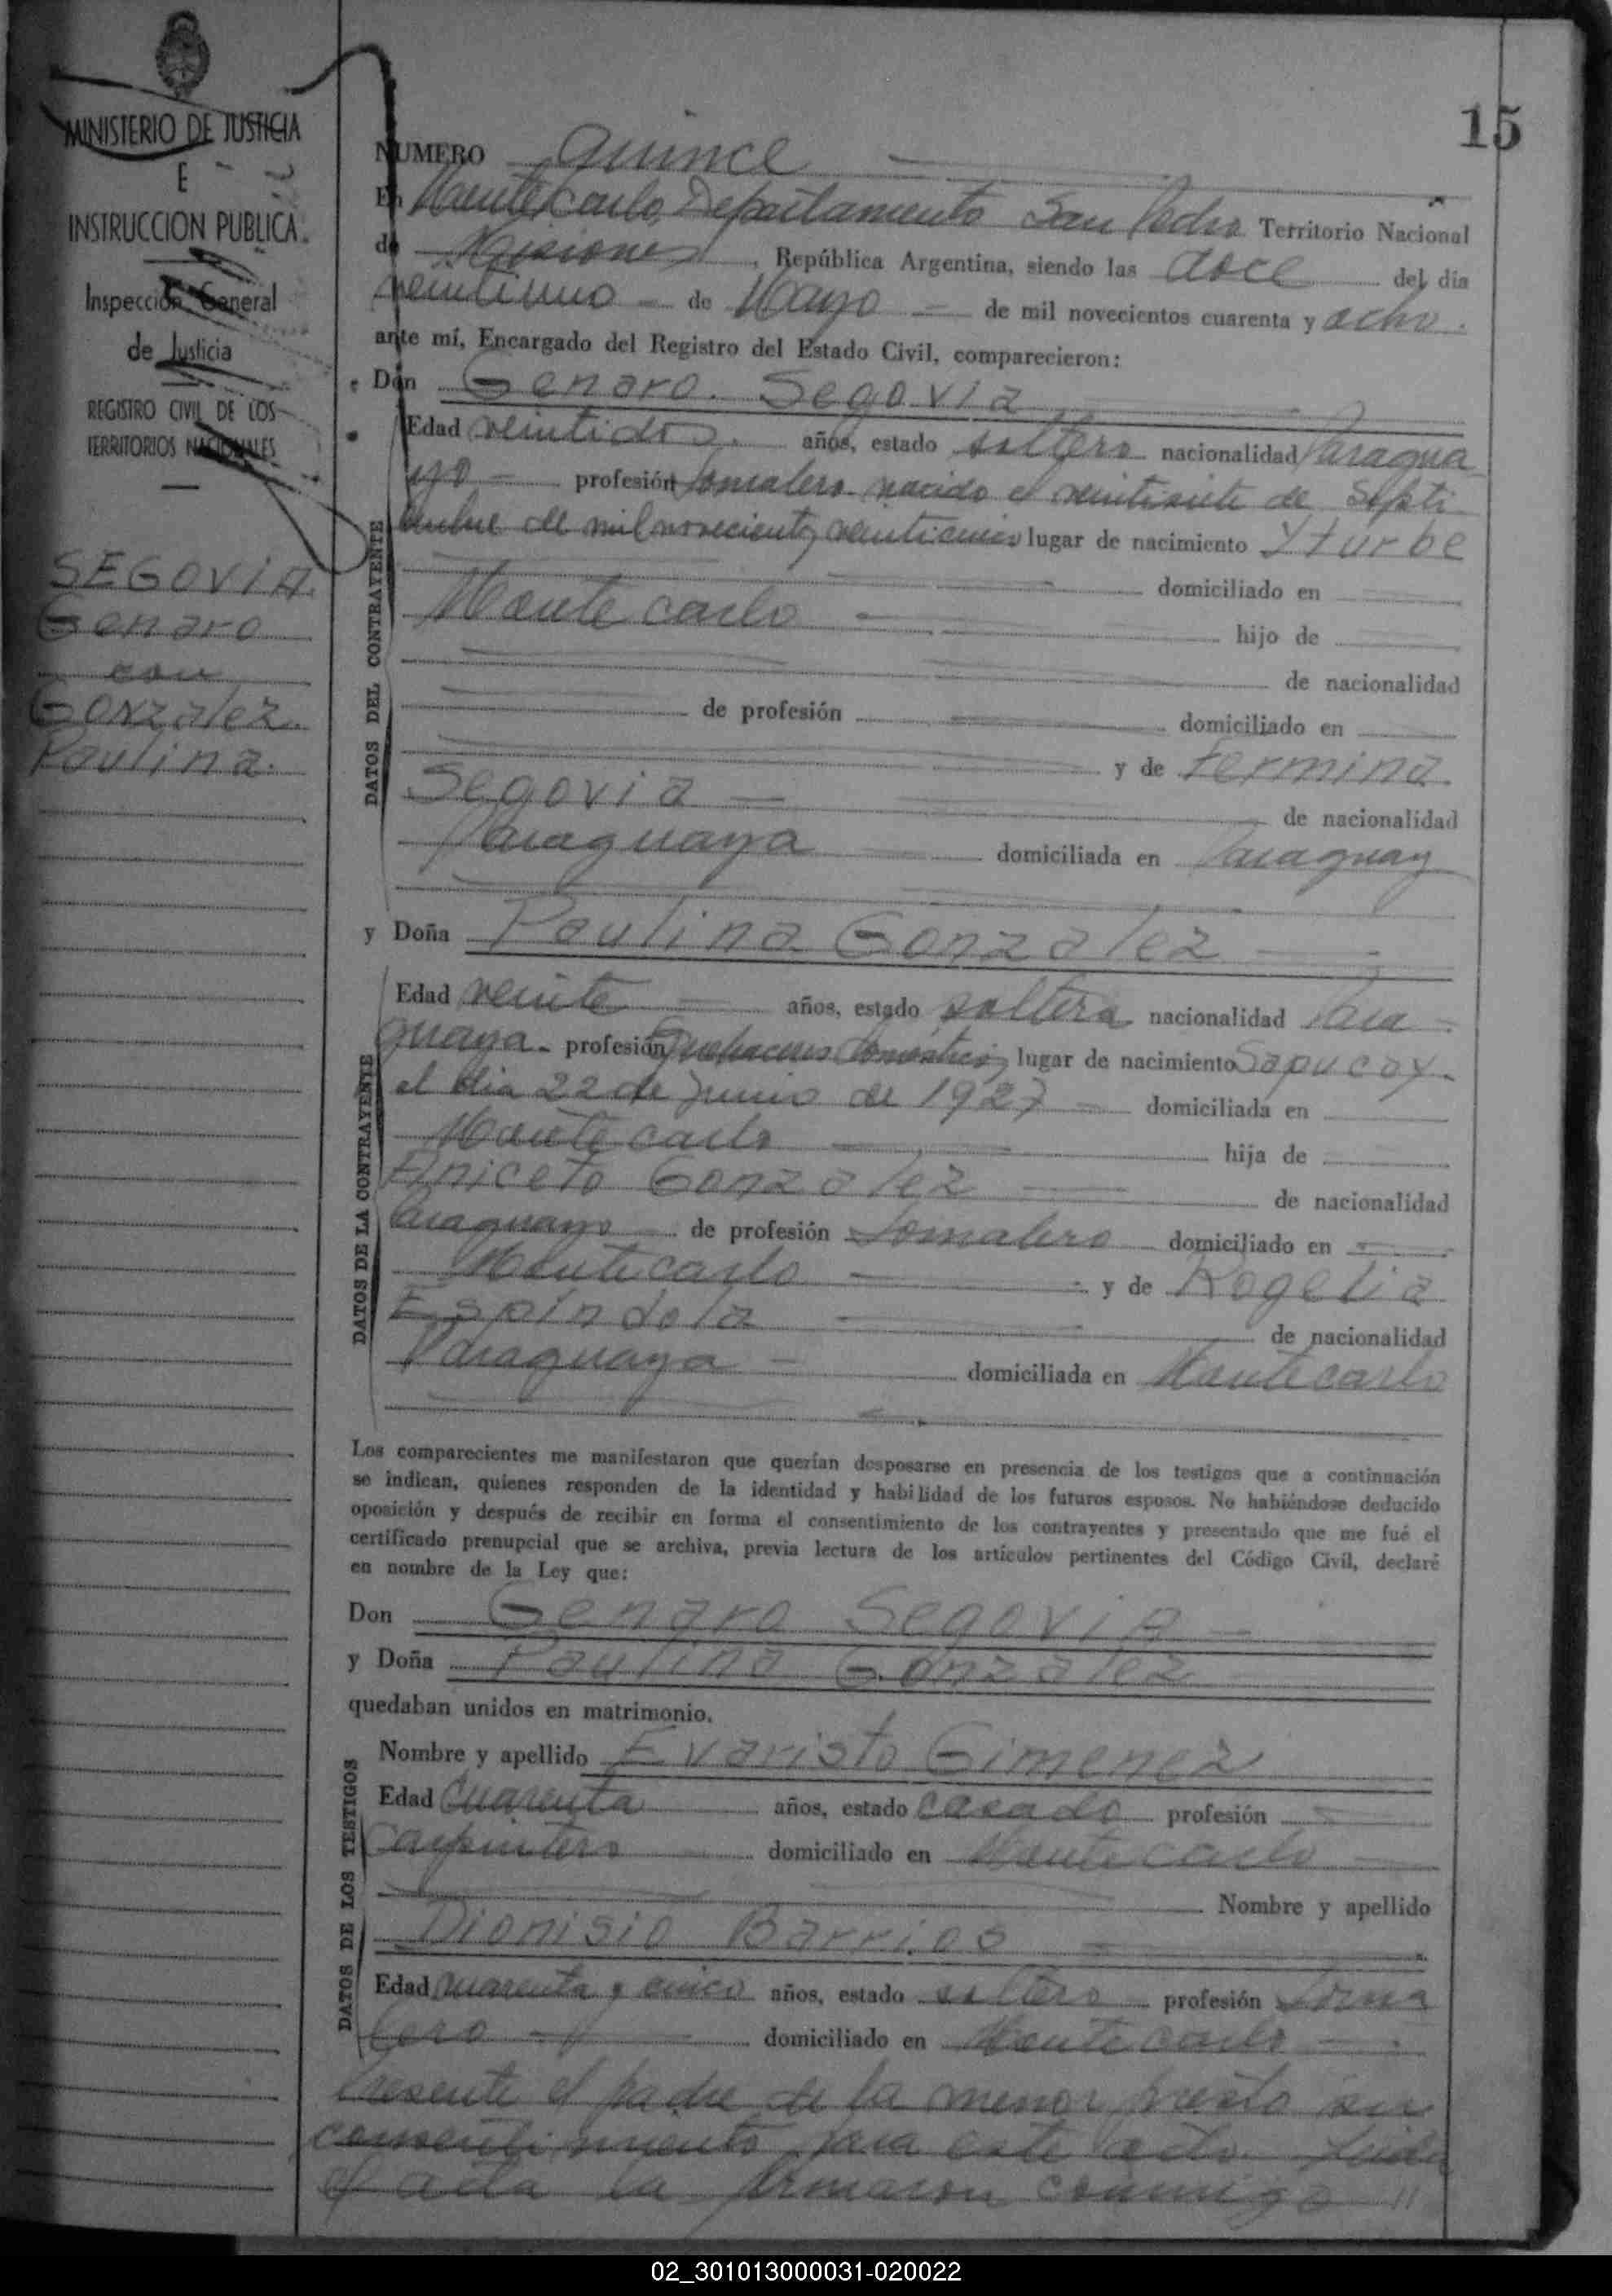 15
MINISTERIO DE JUSTICIA
E
INSTRUCCION PUBLICA
Inspección General
de Justicia
REGISTRO CIVIL DE LOS
TERRITORIOS NACIONALES
SEGOVIA
Genaro
con
Gonzalez
Paulina.
NUMERO quince
En Montecarlo, Departamento San Pedro Territorio Nacional
de Misiones, República Argentina, siendo las doce del día
veintiuno de Mayo de mil novecientos cuarenta y ocho.
ante mí, Encargado del Registro del Estado Civil, comparecieron:
Don Genaro Segovia
DATOS DEL CONTRAYENTE
Edad veintidos. años, estado soltero nacionalidad Paragua
yo profesión Jornalero nacido el veintisiete de Septi
embre de mil novecientos veinticinco lugar de nacimiento Yturbe
domiciliado en
Montecarlo hijo de
de nacionalidad
de profesión domiciliado en
y de Fermina
Segovia de nacionalidad
Paraguaya domiciliada en Paraguay
y Doña Paulina Gonzalez
DATOS DE LA CONTRAYENTE
Edad veinte años, estado soltera nacionalidad Para
guaya profesión Quehaceres domesticos, lugar de nacimiento Sapucay.
el dia 22 de Junio de 1927 domiciliada en
Montecarlo hija de
Aniceto Gonzalez de nacionalidad
Paraguayo de profesión Jornalero domiciliado en
Montecarlo y de Rogelia
Espíndola de nacionalidad
Paraguaya domiciliada en Montecarlo
Los comparecientes me manifestaron que querían desposarse en presencia de los testigos que a continuación
se indican, quienes responden de la identidad y habilidad de los futuros esposos. No habiéndose deducido
oposición y después de recibir en forma el consentimiento de los contrayentes y presentado que me fué el
certificado prenupcial que se archiva, previa lectura de los artículos pertinentes del Código Civil, declaré
en nombre de la Ley que:
Don Genaro Segovia
y Doña Paulina Gonzalez
quedaban unidos en matrimonio.
DATOS DE LOS TESTIGOS
Nombre y apellido Evaristo Gimenez
Edad cuarenta años, estado casado profesión
Carpintero domiciliado en Montecarlo
Nombre y apellido
Dionisio Barrios
Edad cuarenta y cinco años, estado soltero profesión Jorna
lero domiciliado en Montecarlo
Presente el padre de la menor presto su
consentimiento para este acto. Leida
el acta la firmaron conmigo //
02_301013000031-020022